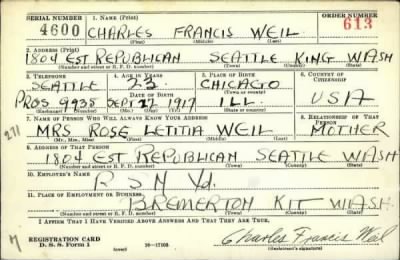 SERIAL NUMBER
1. NAME (Print)
ORDER NUMBER
4600
CHARLES FRANCIS WEIL
613
(First) (Middle) (Last)
2. ADDRESS (Print)
1804 EST REPUBLICAN SEATTLE KING WASH
(Number and street or R. F. D. number) (Town) (County) (State)
3. TELEPHONE
4. AGE IN YEARS
5. PLACE OF BIRTH
6. COUNTRY OF CITIZENSHIP
SEATTLE
23
CHICAGO
DATE OF BIRTH
(Town or county)
PROS 9935
SEPT 27 1917
ILL.
USA
(Exchange) (Number)
(Mo.) (Day) (Yr.)
(State or country)
7. NAME OF PERSON WHO WILL ALWAYS KNOW YOUR ADDRESS
8. RELATIONSHIP OF THAT PERSON
271
MRS ROSE LETITIA WEIL
MOTHER
(Mr., Mrs., Miss) (First) (Middle) (Last)
9. ADDRESS OF THAT PERSON
1804 EST REPUBLICAN SEATTLE WASH
(Number and street or R. F. D. number) (Town) (County) (State)
10. EMPLOYER'S NAME
P S N Yd.
11. PLACE OF EMPLOYMENT OR BUSINESS
BREMERTON KIT WASH.
(Number and street or R. F. D. number) (Town) (County) (State)
I AFFIRM THAT I HAVE VERIFIED ABOVE ANSWERS AND THAT THEY ARE TRUE.
REGISTRATION CARD
D. S. S. Form 1
16—17105
Charles Francis Weil
(Registrant's signature)